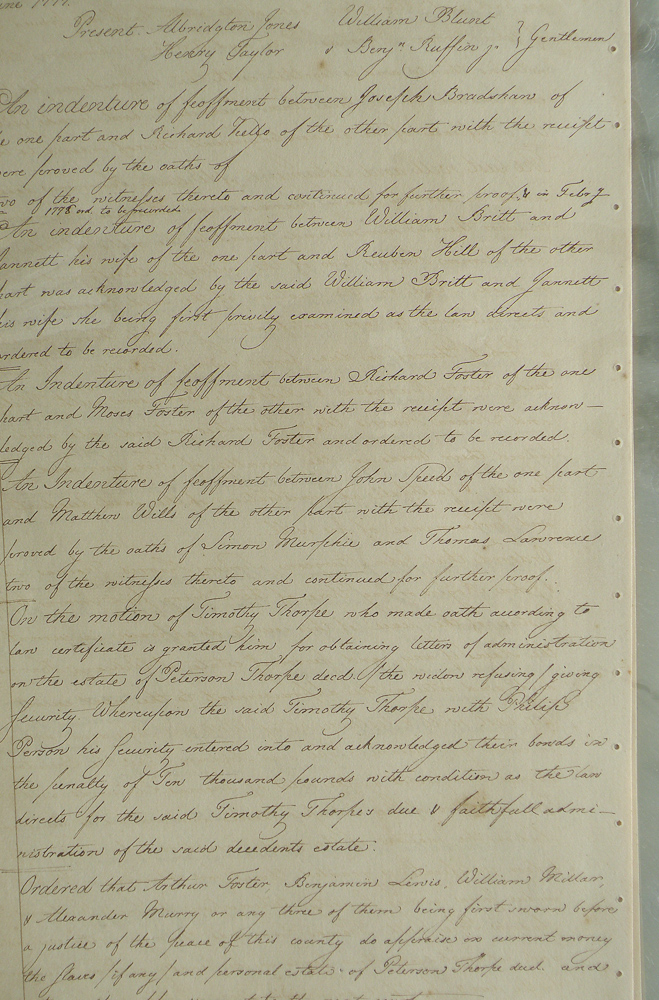 Present. Albridgton Jones William Blunt
Henry Taylor & Benjn Ruffin jr } Gentlemen
An indenture of feoffment between Joseph Bradshaw of
one part and Richard of the other part with the receipt
were proved by the oaths of
two of the witnesses thereto and continued for further proof. & in Febry
1778 ord. to be recorded
An indenture of feoffment between William Britt and
Jannett his wife of the one part and Reuben Hill of the other
part was acknowledged by the said William Britt and Jannett
his wife she being first privily examined as the law directs and
ordered to be recorded.
An Indenture of feoffment between Richard Foster of the one
part and Moses Foster of the other with the receipt were acknow–
ledged by the said Richard Foster and ordered to be recorded.
An Indenture of feoffment between John Speed of the one part
and Matthew Wills of the other part with the receipt were
proved by the oaths of Simon Murphie and Thomas Lawrence
two of the witnesses thereto and continued for further proof.
On the motion of Timothy Thorpe who made oath according to
law certificate is granted him for obtaining letters of administration
on the estate of Peterson Thorpe decd. /the widow refusing/ giving
Security. Whereupon the said Timothy Thorpe with Philip
Person his Security entered into and acknowledged their bonds in
the penalty of Ten thousand pounds with condition as the law
directs for the said Timothy Thorpes due & faithfull admi–
nistration of the said decedents estate.
Ordered that Arthur Foster, Benjamin Lewis, William Millar,
& Alexander Murry or any three of them being first sworn before
a justice of the peace of this county do appraise in current money
the slaves /if any/ and personal estate of Peterson Thorpe decd. and